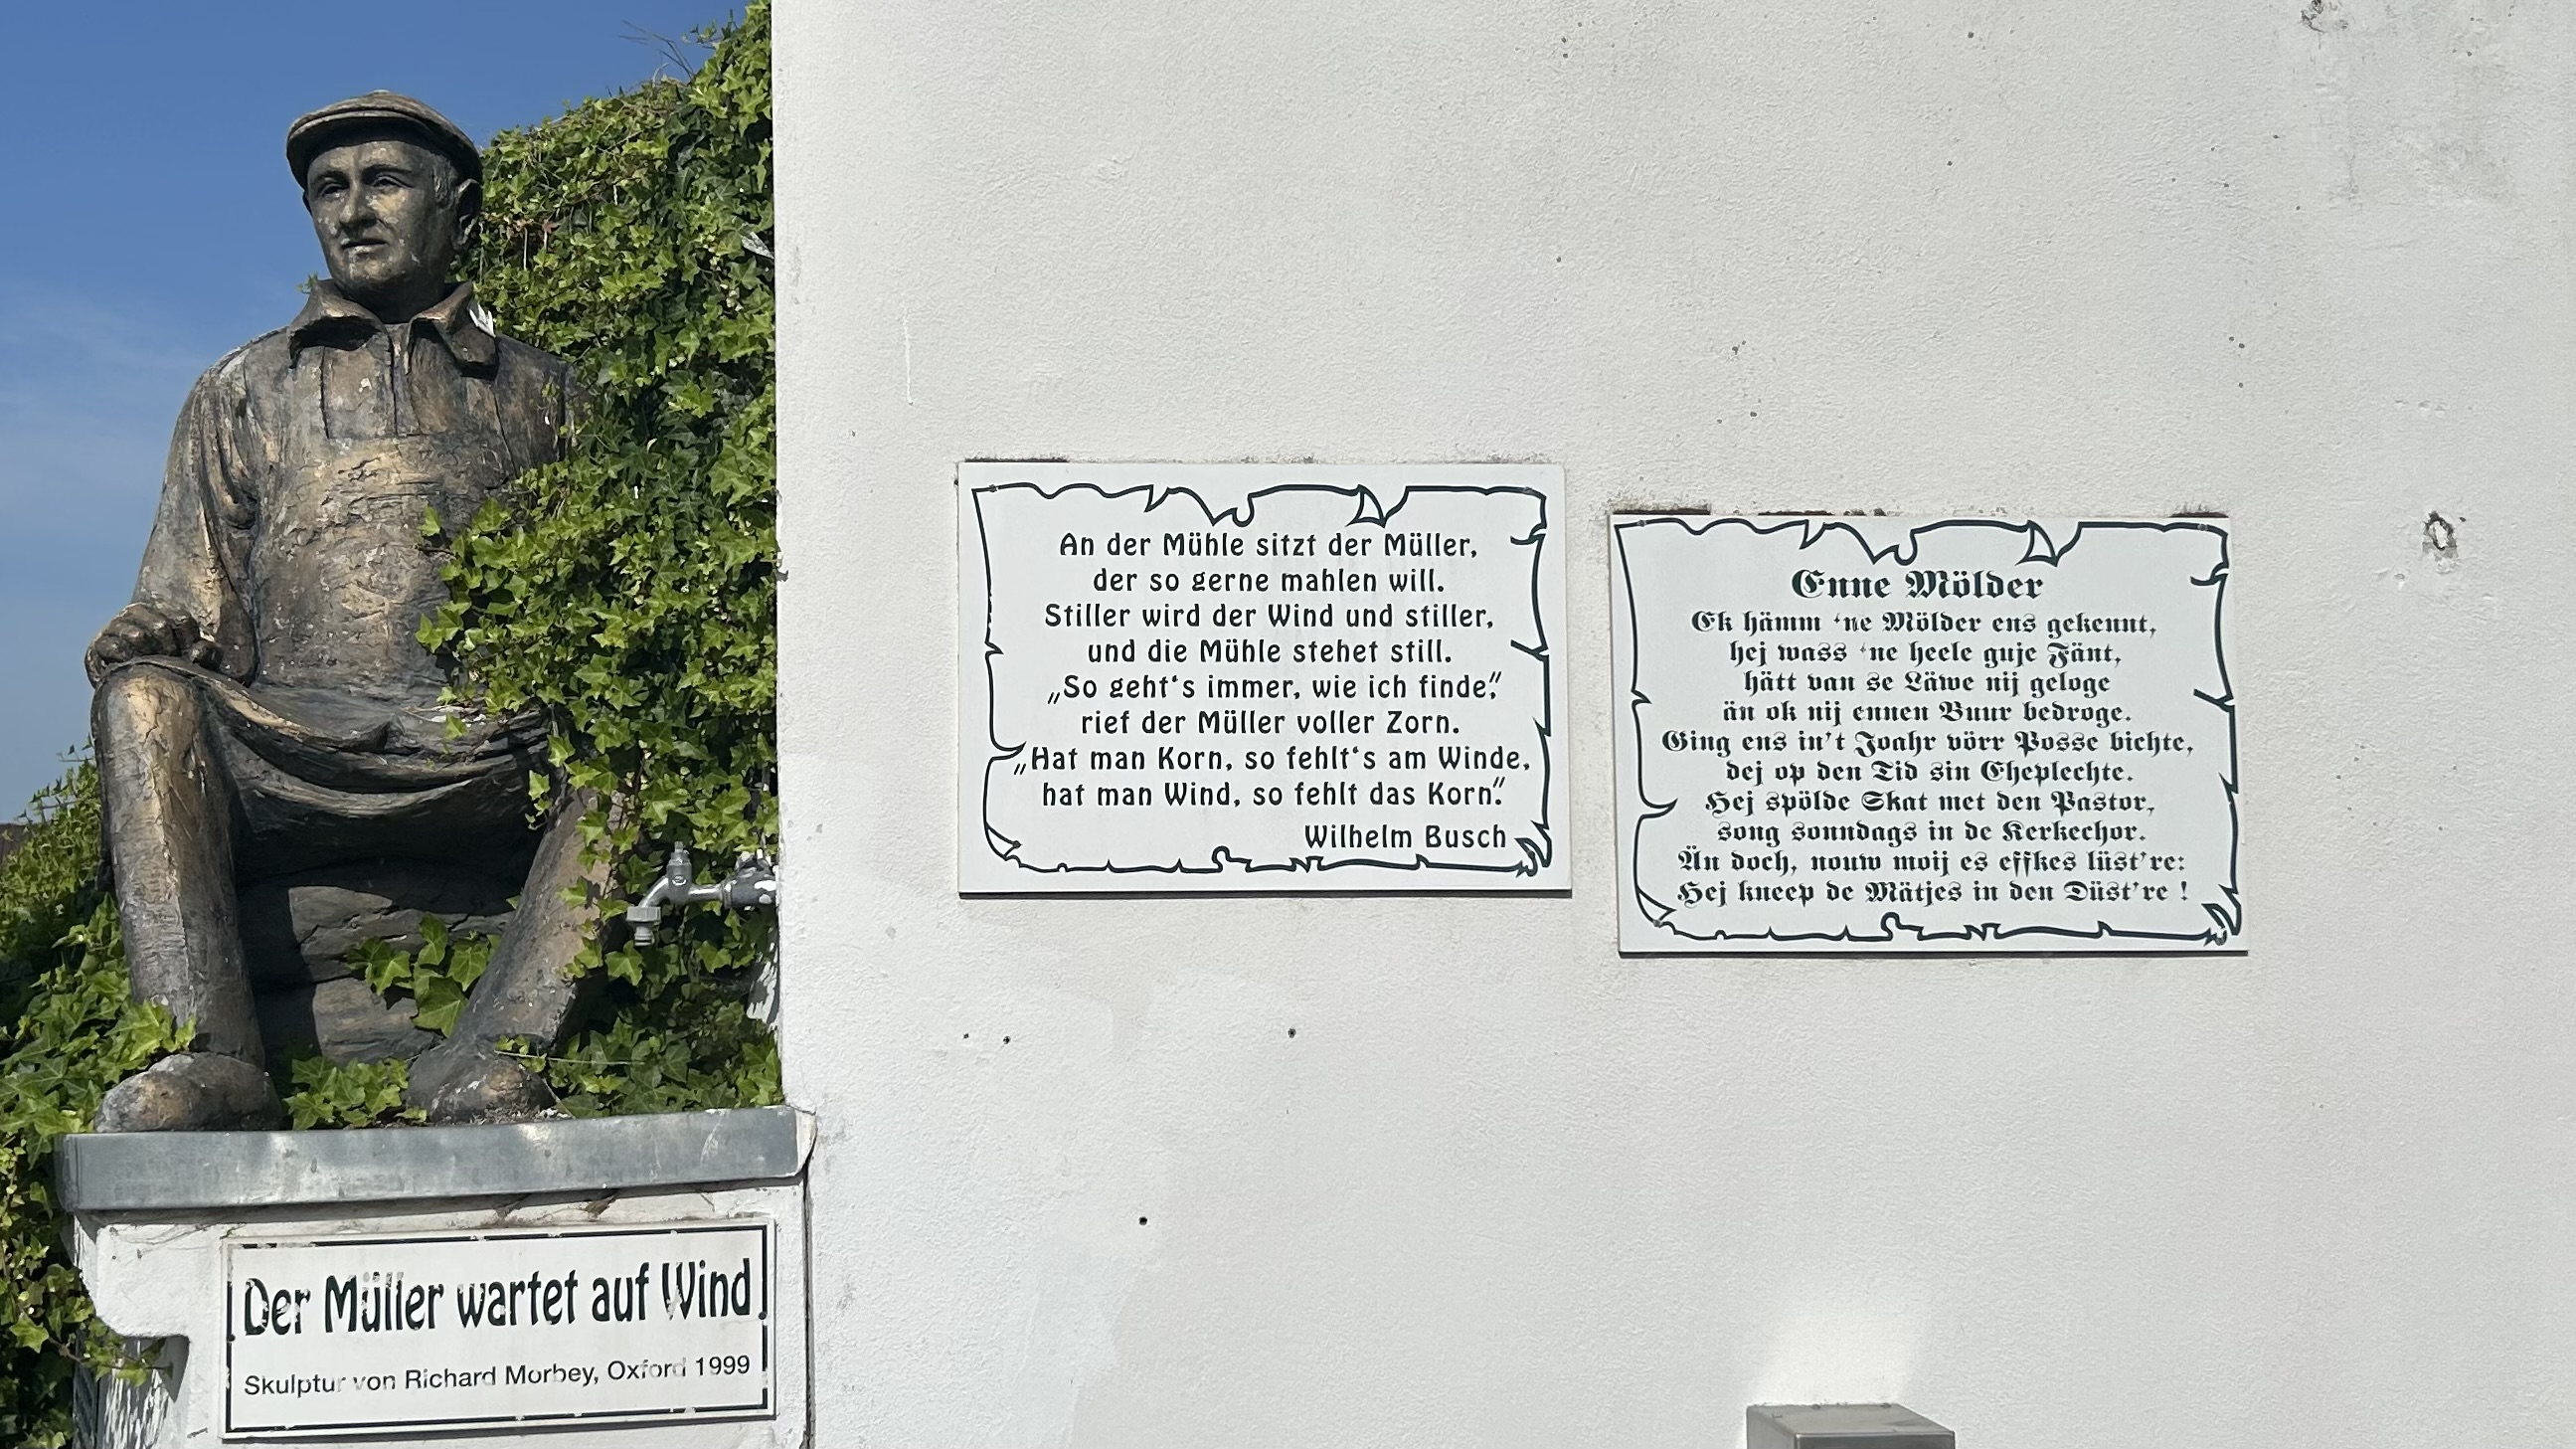 An der Mühle sitzt der Müller,
der so gerne mahlen will.
Stiller wird der Wind und stiller,
und die Mühle stehet still.
„So geht‘s immer, wie ich finde,“
rief der Müller voller Zorn.
„Hat man Korn, so fehlt‘s am Winde,
hat man Wind, so fehlt das Korn.“
Wilhelm Busch
Enne Mölder
Ek hämm ‘ne Mölder ens gekennt,
hej wass ‘ne heele guje Fänt,
hätt van se Läwe nij geloge
än ok nij ennen Buur bedroge.
Ging ens in’t Joahr vörr Posse bichte,
dej op den Tid sin Eheplechte.
Hej spölde Skat met den Pastor,
song sonndags in de Kerkechor.
Än doch, nouw moij es effkes lüst’re:
Hej kneep de Mätjes in den Düst’re !
Der Müller wartet auf Wind
Skulptur von Richard Morbey, Oxford 1999